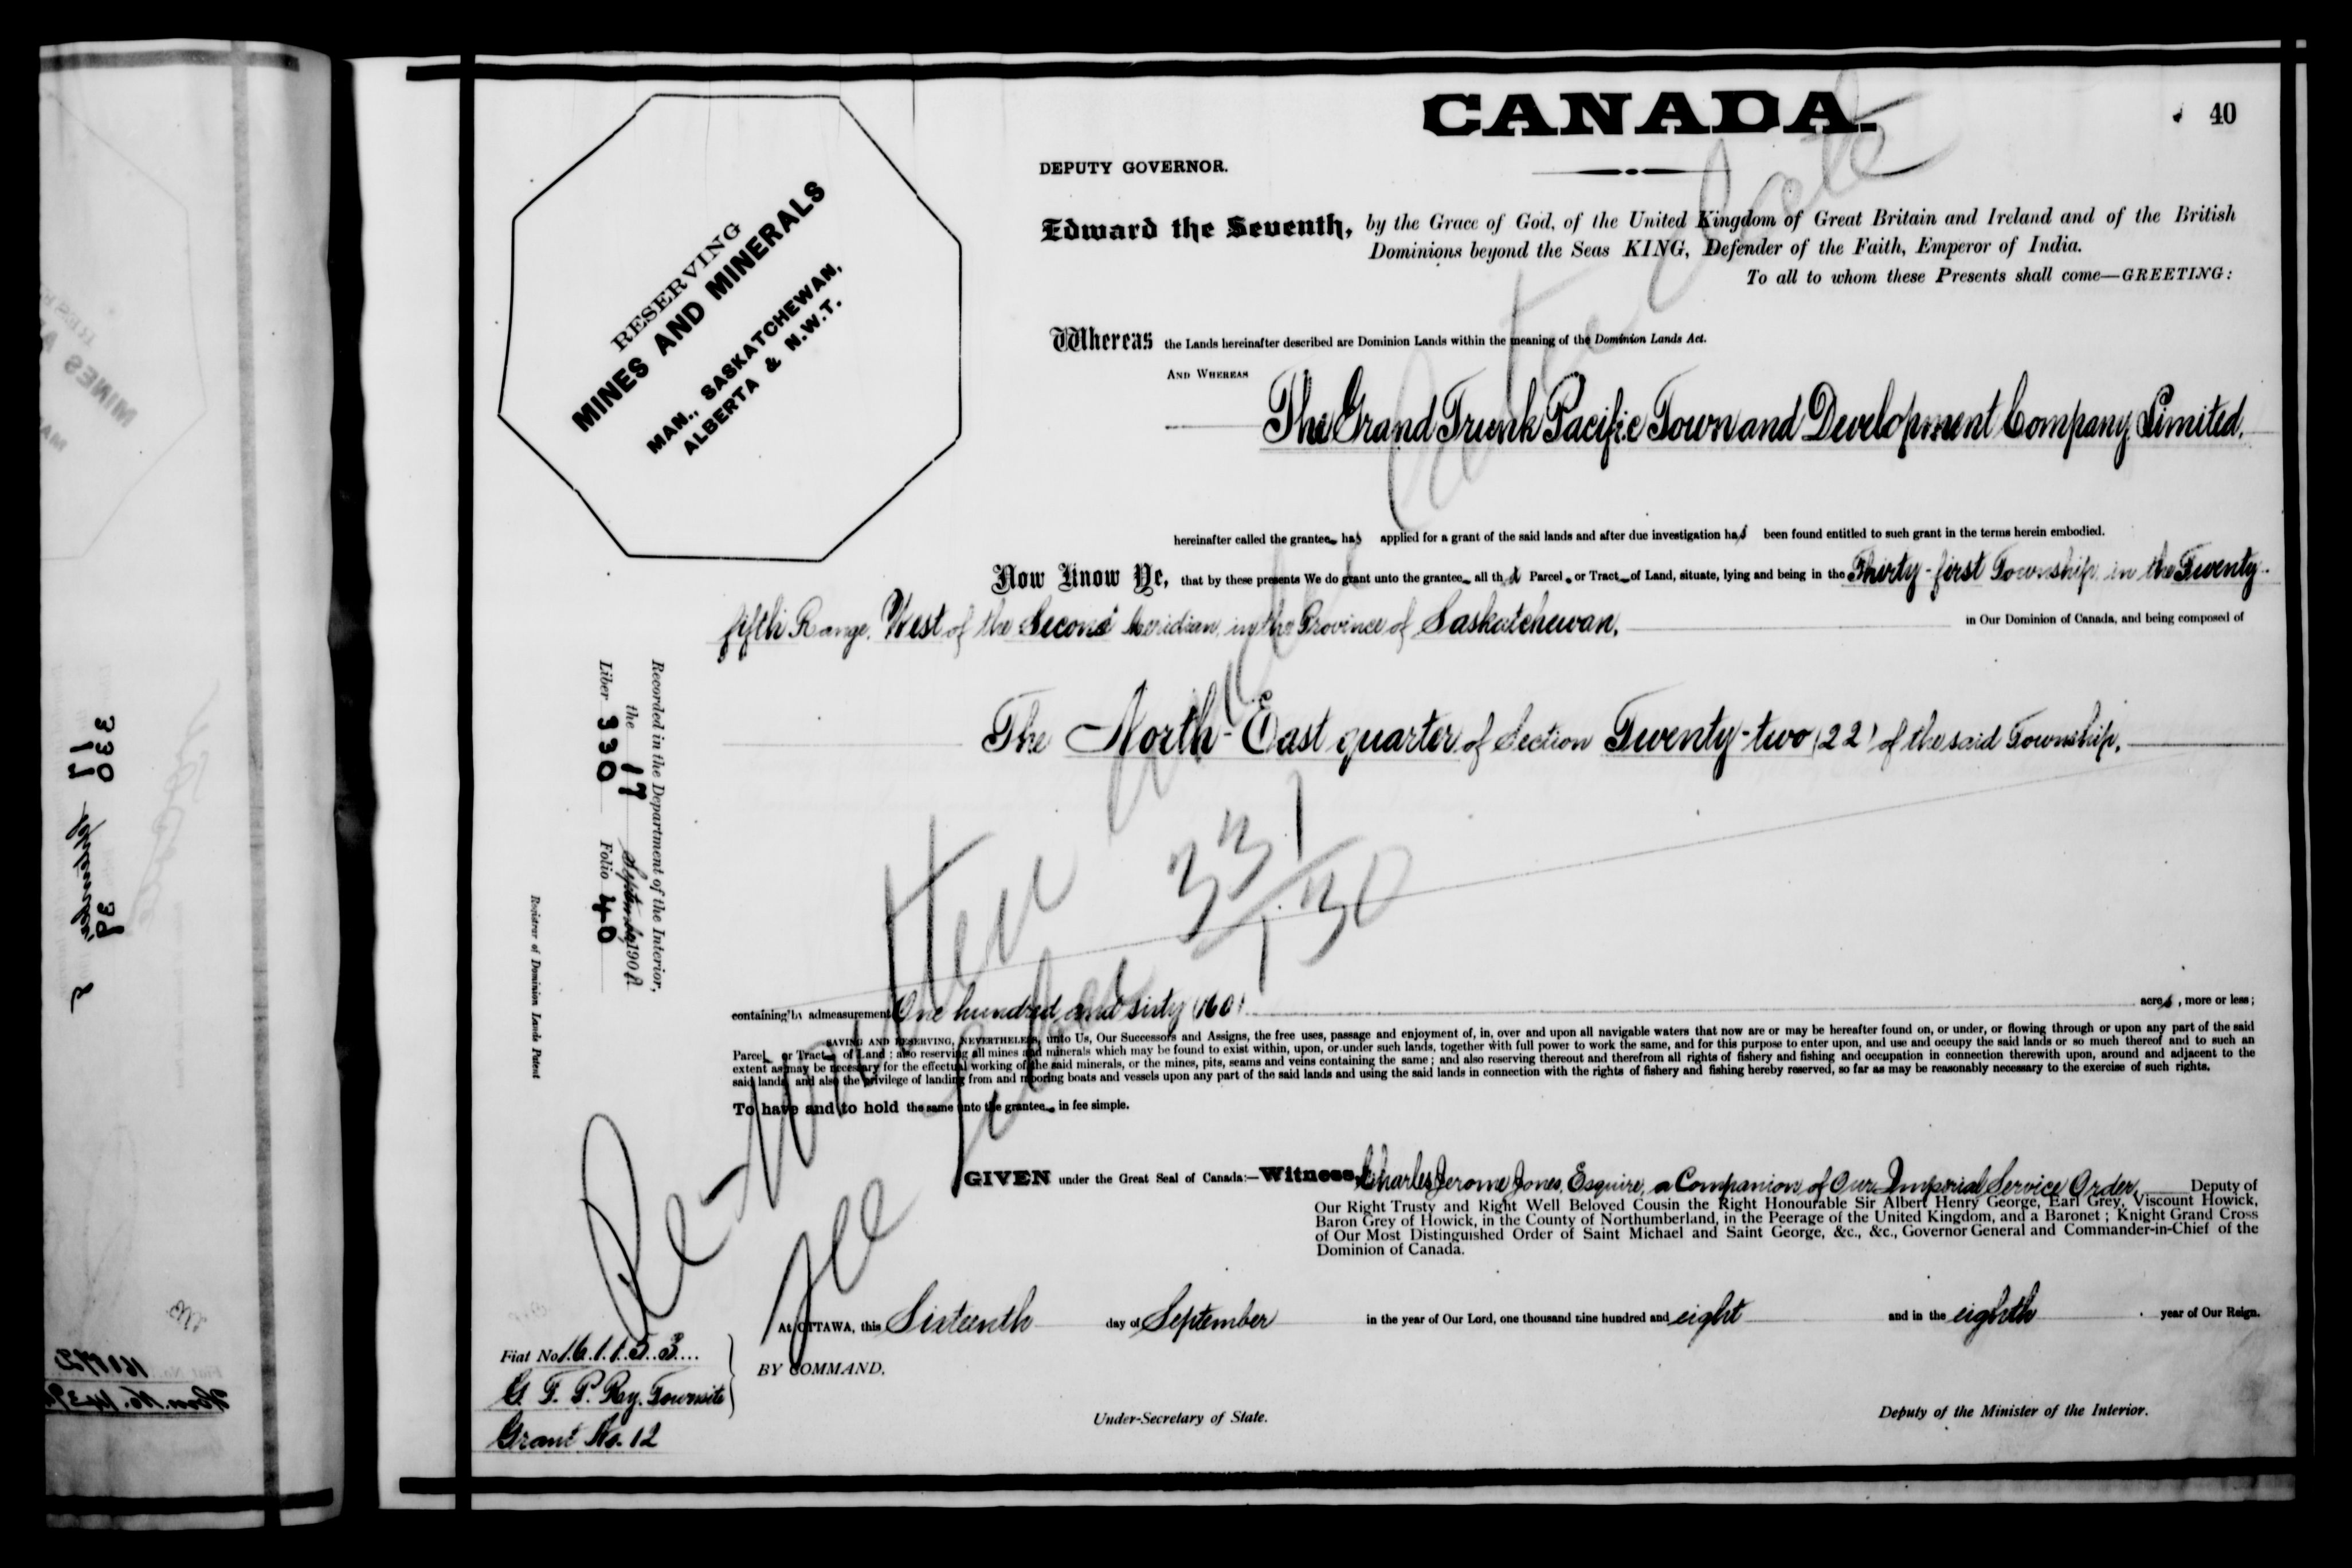 CANADA.
40
DEPUTY GOVERNOR.
Edward the Seventh, by the Grace of God, of the United Kingdom of Great Britain and Ireland and of the British
Dominions beyond the Seas KING, Defender of the Faith, Emperor of India.
To all to whom these Presents shall come—GREETING:
RESERVING
MINES AND MINERALS
MAN., SASKATCHEWAN,
ALBERTA & N.W.T.
Whereas the Lands hereinafter described are Dominion Lands within the meaning of the Dominion Lands Act.
AND WHEREAS
The Grand Trunk Pacific Town and Development Company, Limited,
hereinafter called the grantee has applied for a grant of the said lands and after due investigation has been found entitled to such grant in the terms herein embodied.
Now Know Ye, that by these presents We do grant unto the grantee all that Parcel or Tract of Land, situate, lying and being in the Thirty-first Township, in the Twenty-
fifth Range, West of the Second Meridian, in the Province of Saskatchewan, in Our Dominion of Canada, and being composed of
The North-East quarter of Section Twenty-two (22) of the said Township,
Recorded in the Department of the Interior,
the 17 September 1908
Liber 330 Folio 40
Registrar of Dominion Lands Patent
containing by admeasurement One hundred and sixty (160) acres, more or less;
SAVING AND RESERVING, NEVERTHELESS, unto Us, Our Successors and Assigns, the free uses, passage and enjoyment of, in, over and upon all navigable waters that now are or may be hereafter found on, or under, or flowing through or upon any part of the said
Parcel or Tract of Land; also reserving all mines and minerals which may be found to exist within, upon, or under such lands, together with full power to work the same, and for this purpose to enter upon, and use and occupy the said lands or so much thereof and to such an
extent as may be necessary for the effectual working of the said minerals, or the mines, pits, seams and veins containing the same; and also reserving thereout and therefrom all rights of fishery and fishing and occupation in connection therewith upon, around and adjacent to the
said lands and also the privilege of landing from and mooring boats and vessels upon any part of the said lands and using the said lands in connection with the rights of fishery and fishing hereby reserved, so far as may be reasonably necessary to the exercise of such rights.
To have and to hold the same unto the grantee in fee simple.
Re-written
See Liber
331
130
GIVEN under the Great Seal of Canada:—Witness, Charles Jerome Jones, Esquire, a Companion of Our Imperial Service Order, Deputy of
Our Right Trusty and Right Well Beloved Cousin the Right Honourable Sir Albert Henry George, Earl Grey, Viscount Howick,
Baron Grey of Howick, in the County of Northumberland, in the Peerage of the United Kingdom, and a Baronet; Knight Grand Cross
of Our Most Distinguished Order of Saint Michael and Saint George, &c., &c., Governor General and Commander-in-Chief of the
Dominion of Canada.
At OTTAWA, this Sixteenth day of September in the year of Our Lord, one thousand nine hundred and eight and in the eighth year of Our Reign.
BY COMMAND,
Fiat No. 161153
G. T. P. Ry. Townsite
Grant No. 12
Under-Secretary of State.
Deputy of the Minister of the Interior.